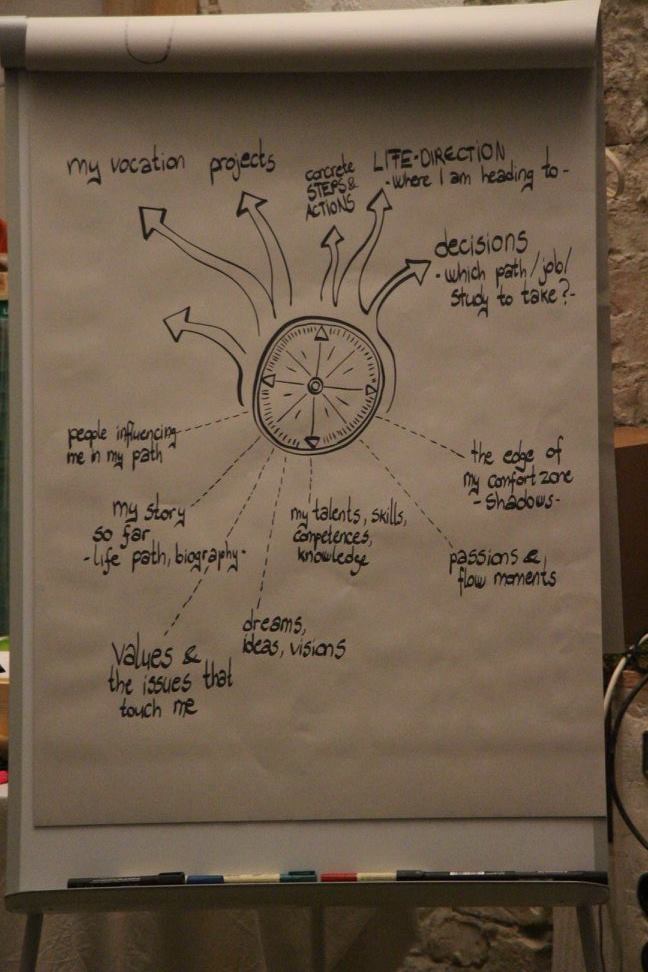 my vocation
projects
concrete
STEPS &
ACTIONS
LIFE-DIRECTION
-where I am heading to-
decisions
-which path/job/
study to take?-
people influencing
me in my path
the edge of
my comfort zone
-shadows-
my story
so far
-life path, biography-
my talents, skills,
competences,
knowledge
passions &
flow moments
dreams,
ideas, visions
values &
the issues that
touch me